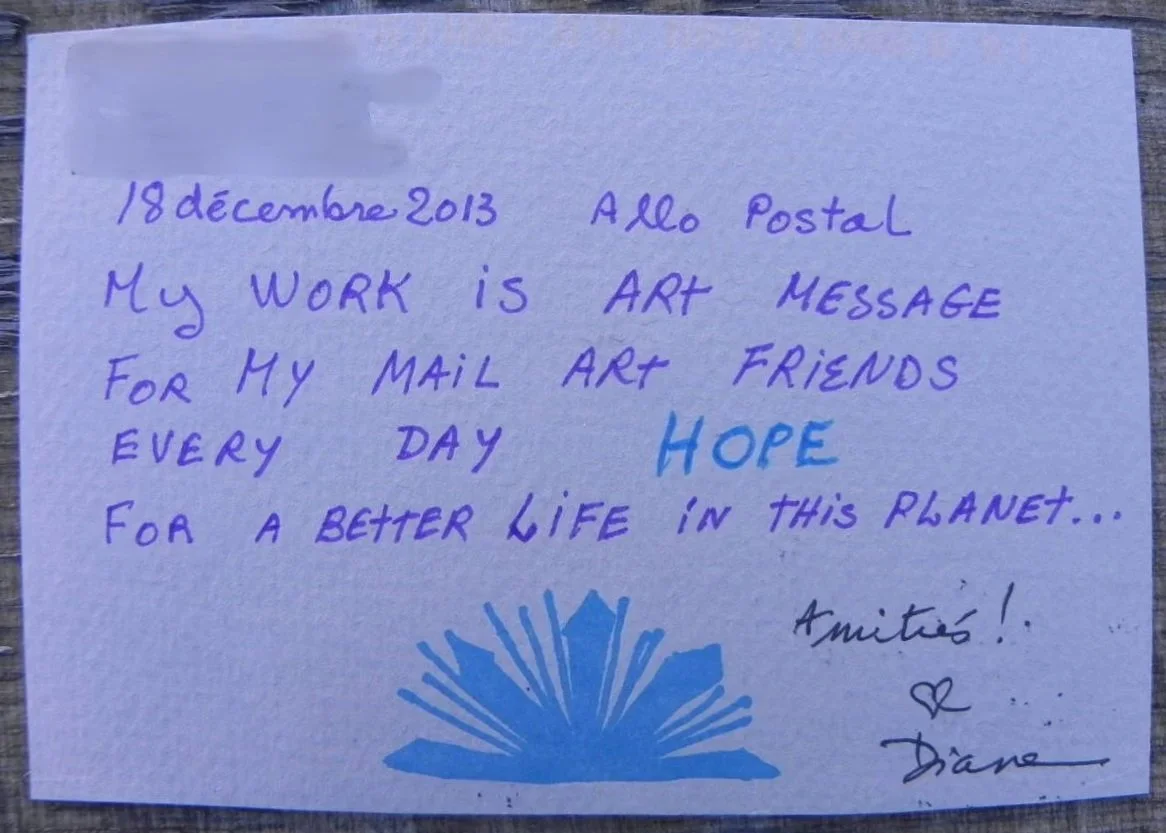 18 décembre 2013 Allo Postal
My WORK iS ARt MESSAGE
FOR MY MAiL ARt FRiENDS
EVERY DAY HOPE
FOR A BEttER LiFE iN tHis PLANEt...
Amitiés !
Diane